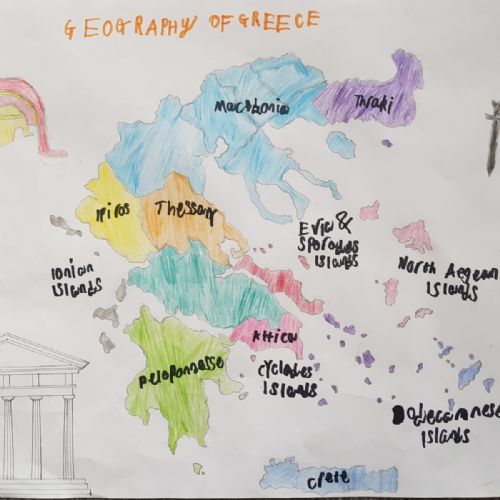 GEOGRAPHY OF GREECE
Macedonia
Thraki
Ipiros
Thessary
Evia &
Sporades
Islands
Ionian
Islands
North Aegean
Islands
Attica
Peloponnesse
Cyclades
Islands
Dodecannese
Islands
Crete